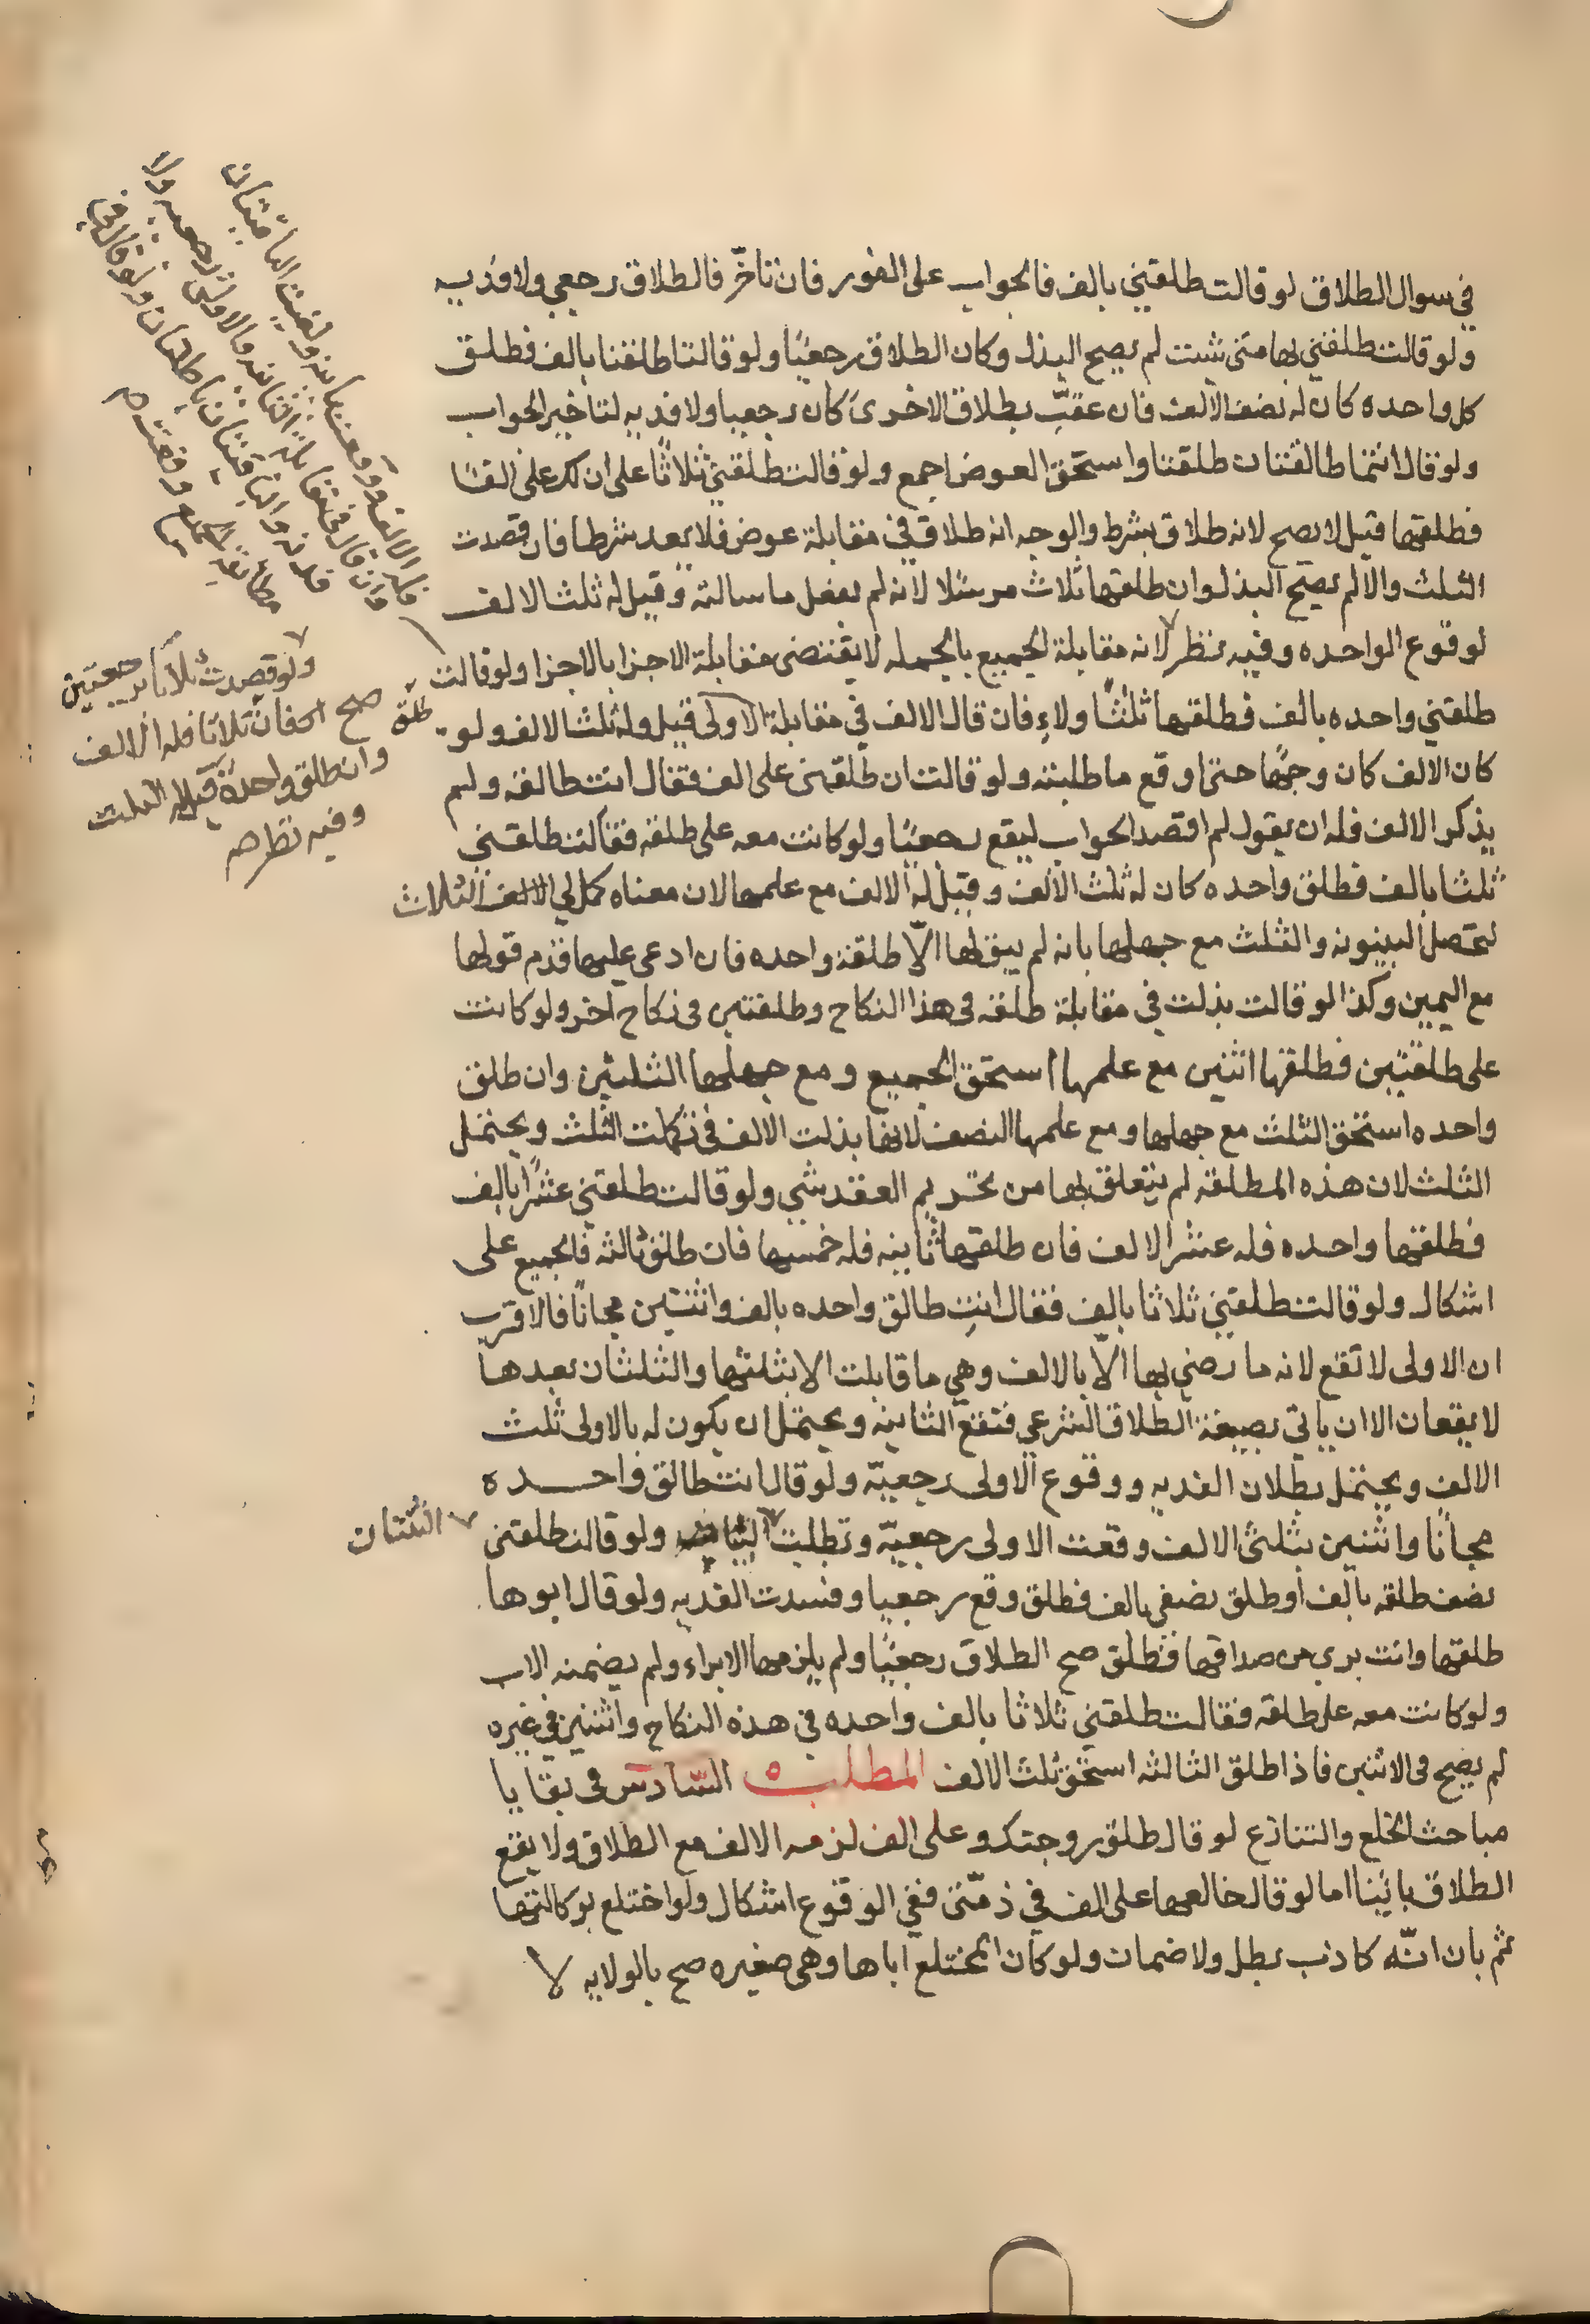 في سوال الطلاق لو قالت طلقني بالف فالجواب على الفور فان تاخّر فالطلاق رجعي ولا فديه
ولو قالت طلقني بها متى شيت لم يصح البذل وكان الطلاق رجعيًا ولو قالتا طلقنا بالف فطلق
كل واحده كان له نصف الالف فان عقبّ بطلاق الاخرى كان رجعيا ولا فديه لتاخير الجواب
ولو قال انتما طالقتان طلقتا واستحق العوض اجمع ولو قالت طلقني ثلاثًا على ان لك على الفًا
فطلقها قيل لا يصح لانه طلاق بشرط والوجه انه طلاق في مقابلة عوض فلا يعد شرطا فان قصدت
الثلث والا لم يصح البذل وان طلقها ثلاث مرسلا لانه لم يفعل ما سالته وقيل له ثلث الالف
لوقوع الواحده وفيه نظر لانه مقابلة الجميع بالجمله لا يقتضي مقابلة الاجزا بالاجزا ولو قالت
طلقني واحده بالف فطلقها ثلثًا ولاءِ فان قال الالف في مقابلة الاولى قيل وله ثلث الالف ولو
كان الالف كان وجهًا حتى اوقع ما طلبته ولو قالت ان طلقتني على الف فقال انت طالقه ولم
يذكر الالف فله ان يقول لم اقصد الجواب ليقع رجعيًا ولو كانت معه على طلقه فقالت طلقني
ثلثا بالف فطلق واحده كان له ثلث الالف وقيل له الالف مع علمها لان معناه كمل لي الثلاث
لتحصل البينونه والثلث مع جهلها بانه لم يبق لها الّا طلقة واحده فان ادعى عليها قدم قولها
مع اليمين وكذا لو قالت بذلت في مقابلة طلقه في هذا النكاح وطلقتين في نكاح اخر ولو كانت
على طلقتين فطلقها اثنين مع علمها استحق الجميع ومع جهلها الثلثين وان طلق
واحده استحق الثلث مع جهلها ومع علمها النصف لانها بذلت الالف في تكملت الثلث ويحتمل
الثلث لان هذه المطلقه لم يتعلق بها من تحريم العقد شي ولو قالت طلقني عشرًا بالف
فطلقها واحده فله عشر الالف فان طلقها ثانيه فله خمسها فان طلق ثالثه فالجميع على
اشكال ولو قالت طلقني ثلاثا بالف فقال انتِ طالق واحده بالف واثنتين مجانًا فالاقرب
ان الاولى لا تقع لانه ما رضي بها الّا بالالف وهي ما قابلت الا بثلثها والثلثان بعدها
لا يقعان الا ان ياتي بصيغة الطلاق الشرعي فتقع الثانيه ويحتمل ان يكون له بالاولى ثلث
الالف ويحتمل بطلان الفديه ووقوع الاولى رجعيّه ولو قال انت طالق واحده
مجانًا واثنين بثلثى الالف وقعت الاولى رجعيّه وبطلت الثانيه ولو قالت طلقتى
الثنتان
نصف طلقه بالف او طلق نصفي بالف فطلق وقع رجعيا وفسدت الفديه ولو قال ابوها
طلقها وانت بري من صداقها فطلق صح الطلاق رجعيًا ولم يلزمها الابراء ولم يضمنه الاب
ولو كانت معه على طلقه فقالت طلقني ثلاثا بالف واحده في هذه النكاح واثنين في غيره
لم يصح في الاثنين فاذا طلق الثالثه استحق ثلث الالف المطلب السّادس في بقايا
مباحث الخلع والتنازع لو قال طلق زوجتك وعلى الف لزمه الالف مع الطلاق ولا يقع
الطلاق باينا اما لو قال خالعها على الف في ذمّتى ففي الوقوع اشكال ولو اختلع بوكالتها
ثم بان انّه كاذب بطل ولا ضمان ولو كان المختلع اباها وهي صغيره صح بالولايه لا
فله الالف ووقعت باينه ولغيت الباقيتان
وان قال في مقابلة الثانيه فالاولى رجعيه ولا
فديه والباقيتان باطلتان ولو قال في
مقابلة الجميع وقعت
ولو قصدت ثلاثا برجعتين
صح فان طلق ثلاثا فله الالف
وان طلق واحدة قيل له الثلث
وفيه نظر